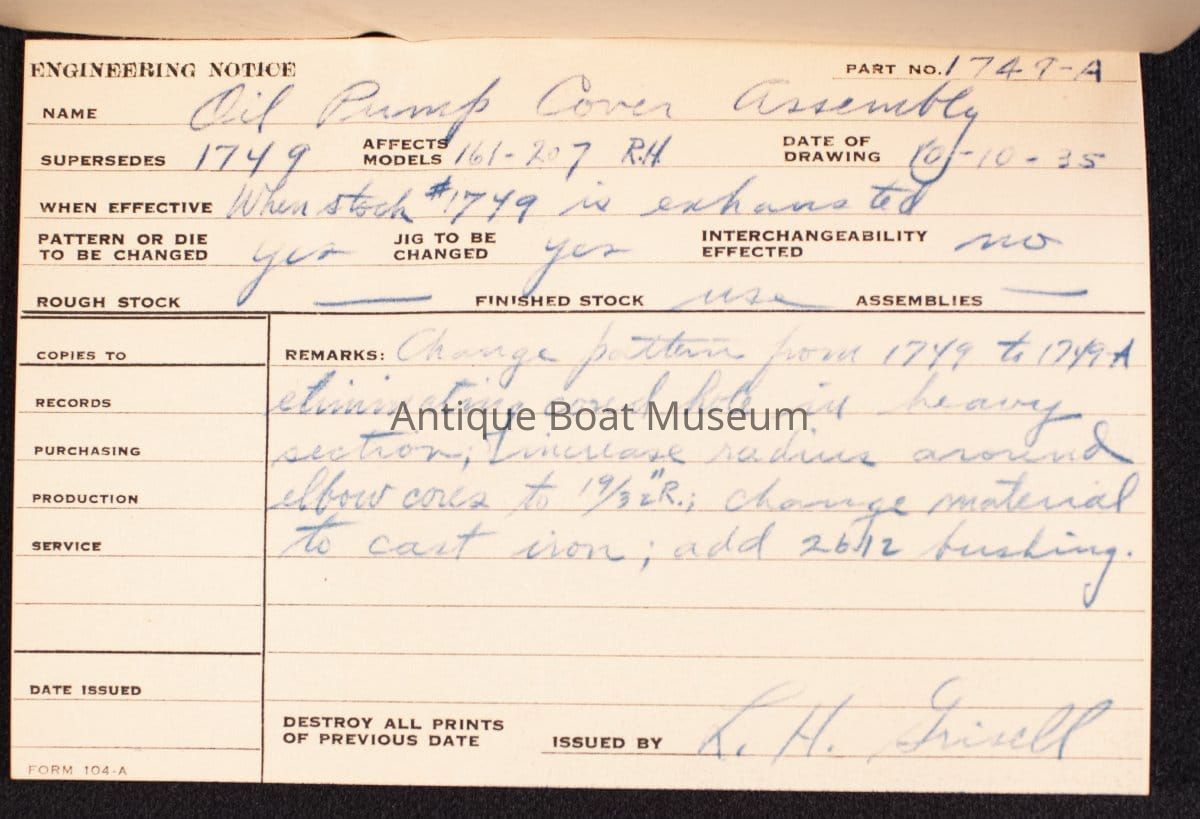 ENGINEERING NOTICE PART NO. 1749-A
NAME Oil Pump Cover Assembly
SUPERSEDES 1749 AFFECTS MODELS 161-207 R.H. DATE OF DRAWING 10-10-35
WHEN EFFECTIVE When stock #1749 is exhausted
PATTERN OR DIE TO BE CHANGED yes JIG TO BE CHANGED yes INTERCHANGEABILITY EFFECTED no
ROUGH STOCK — FINISHED STOCK use ASSEMBLIES —
COPIES TO
RECORDS
PURCHASING
PRODUCTION
SERVICE
DATE ISSUED
FORM 104-A
REMARKS: Change pattern from 1749 to 1749-A
eliminating cored hole in heavy
section; increase radius around
elbow cores to 19/32"R.; change material
to cast iron; add 2612 bushing.
DESTROY ALL PRINTS
OF PREVIOUS DATE
ISSUED BY L. H. Grisell
Antique Boat Museum